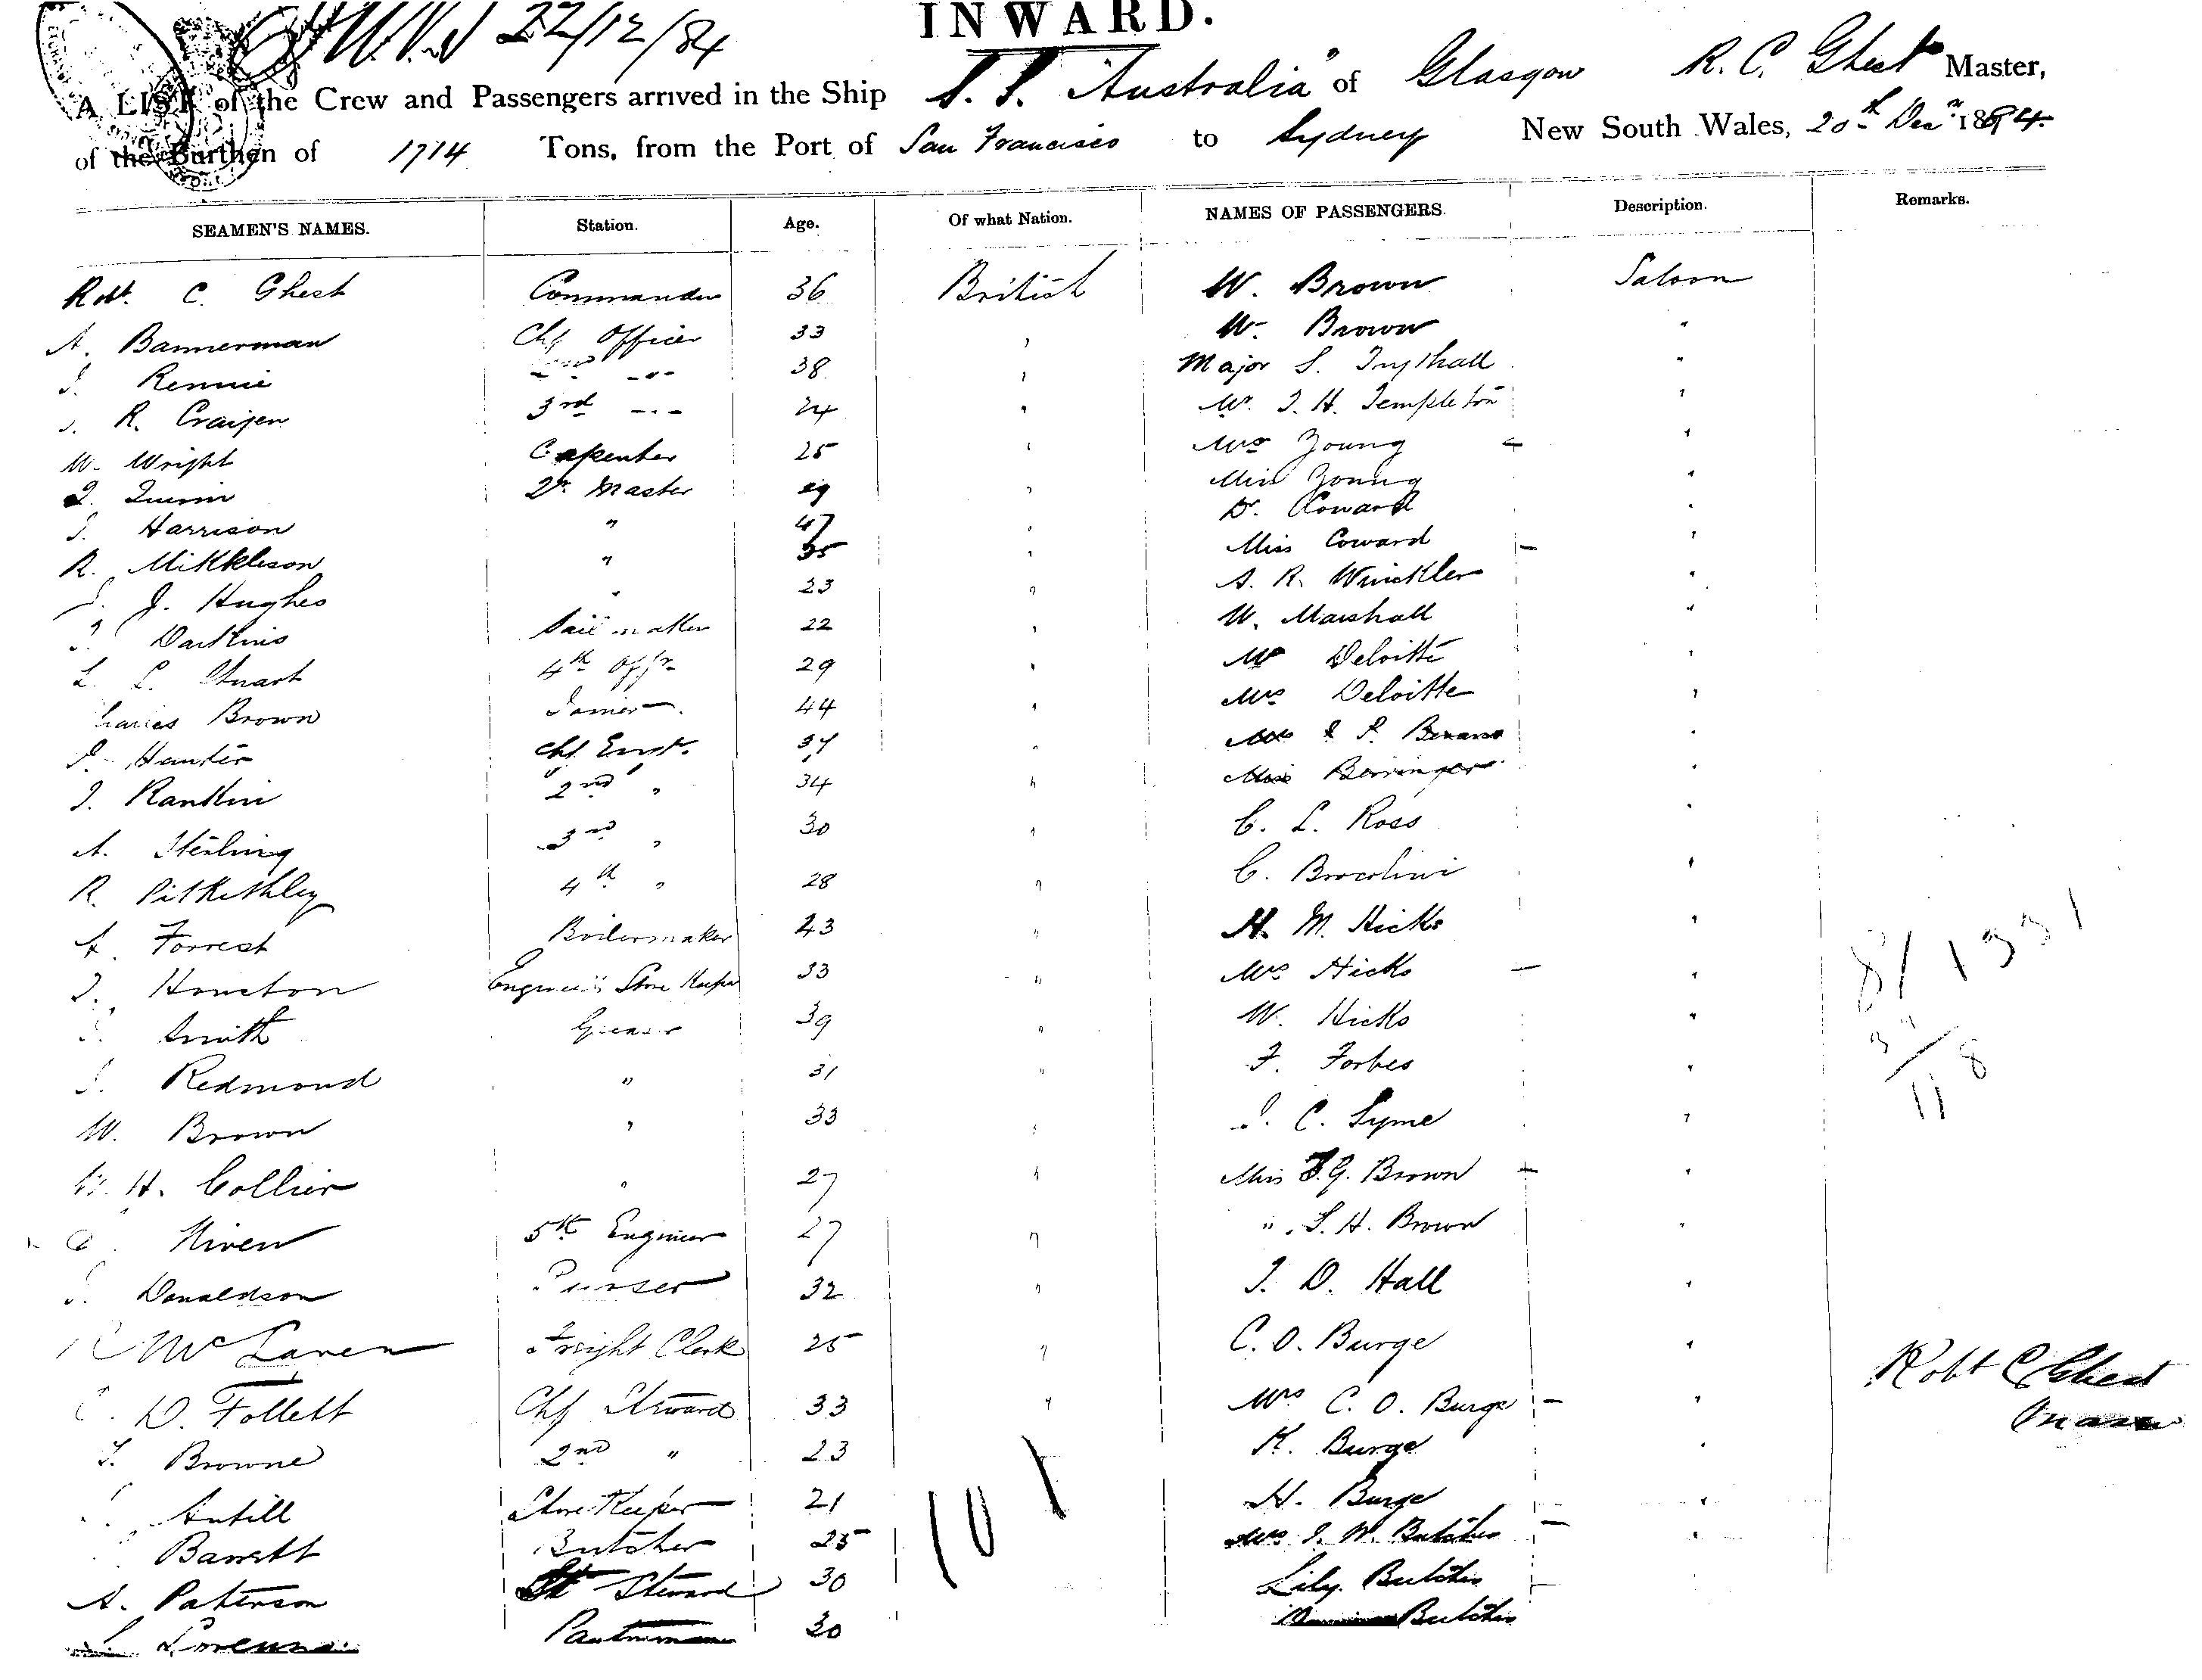 22/12/84
INWARD.
A LIST of the Crew and Passengers arrived in the Ship S. S. "Australia" of Glasgow R. C. Ghest Master,
of the Burthen of 1714 Tons, from the Port of San Francisco to Sydney New South Wales, 20th Decr 1884.
SEAMEN'S NAMES. Station. Age. Of what Nation. NAMES OF PASSENGERS. Description. Remarks.
Robt. C. Ghest Commander 36 British W. Brown Saloon
A. Bannerman Chf Officer 33 " W. Brown "
Rennie 38 " Major S. "
R. Craigen 3rd -"- 24 " Mr. J. H. Templeton "
W. Wright Carpenter 25 " Mrs Young "
Quinn Qr. Master " Miss Young "
J. Harrison " 47 " Dr. Coward "
R. Mikkleson " 35 " Miss Coward "
J. Hughes " 23 " A. R. Winckler "
Sailmaker 22 " W. Marshall "
L. Stuart 4th Offr. 29 " Mr Deloitte "
Charles Brown Joiner 44 " Mrs Deloitte "
J. Hunter Chf Engr. 37 " "
J. Rankin 2nd " 34 " Miss "
A. Sterling 3rd " 30 " C. L. Ross "
R. Pitkethley 4th " 28 " C. Brocolini "
A. Forrest Boilermaker 43 " H. M. Hicks "
J. Houston Engineer's Store Keeper 33 " Mrs Hicks "
Smith Greaser 39 " W. Hicks "
Redmond " 31 " F. Forbes "
W. Brown " 33 " J. C. Syme "
W. H. Collier " 27 " Miss G. Brown "
Niven 5th Engineer 27 " " S. H. Brown "
Donaldson Purser 32 " J. D. Hall "
McLaren Freight Clerk 25 " C. O. Burge "
D. Follett Chf Steward 33 " Mrs C. O. Burge " Robt C Ghest
Browne 2nd " 23 K. Burge " Master
Antill Store Keeper 21 H. Burge "
Barrett Butcher 25 101 Mrs J. W. Butcher "
A. Paterson Steward 30 Lily Butcher
Pantryman 30 Butcher